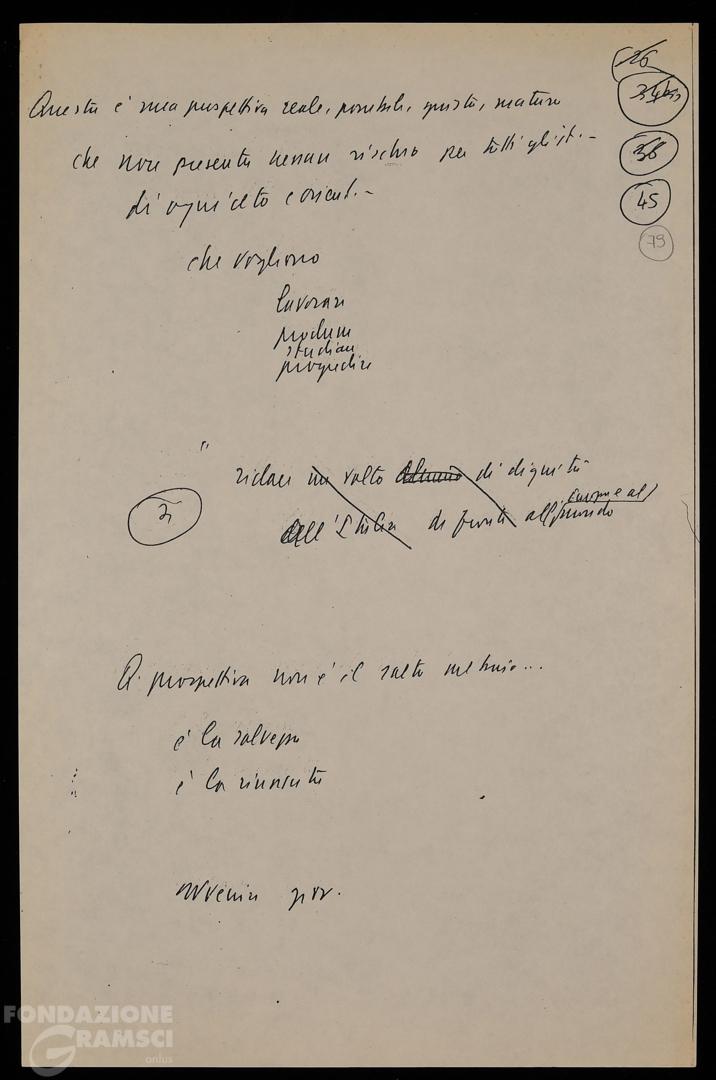 26
34bis
38
45
79
Questa è una prospettiva reale, possibile, giusta, matura
che non presenta nessun rischio per tutti gli it.-
di ogni ceto e orient.-
che vogliono
lavorare
produrre
studiare
progredire
ridare un volto di dignità
all'Italia di fronte all'Europa e al mondo
Q. prospettiva non è il salto nel buio...
è la salvezza
è la rinascita
avvenire giov.
FONDAZIONE
GRAMSCI
onlus